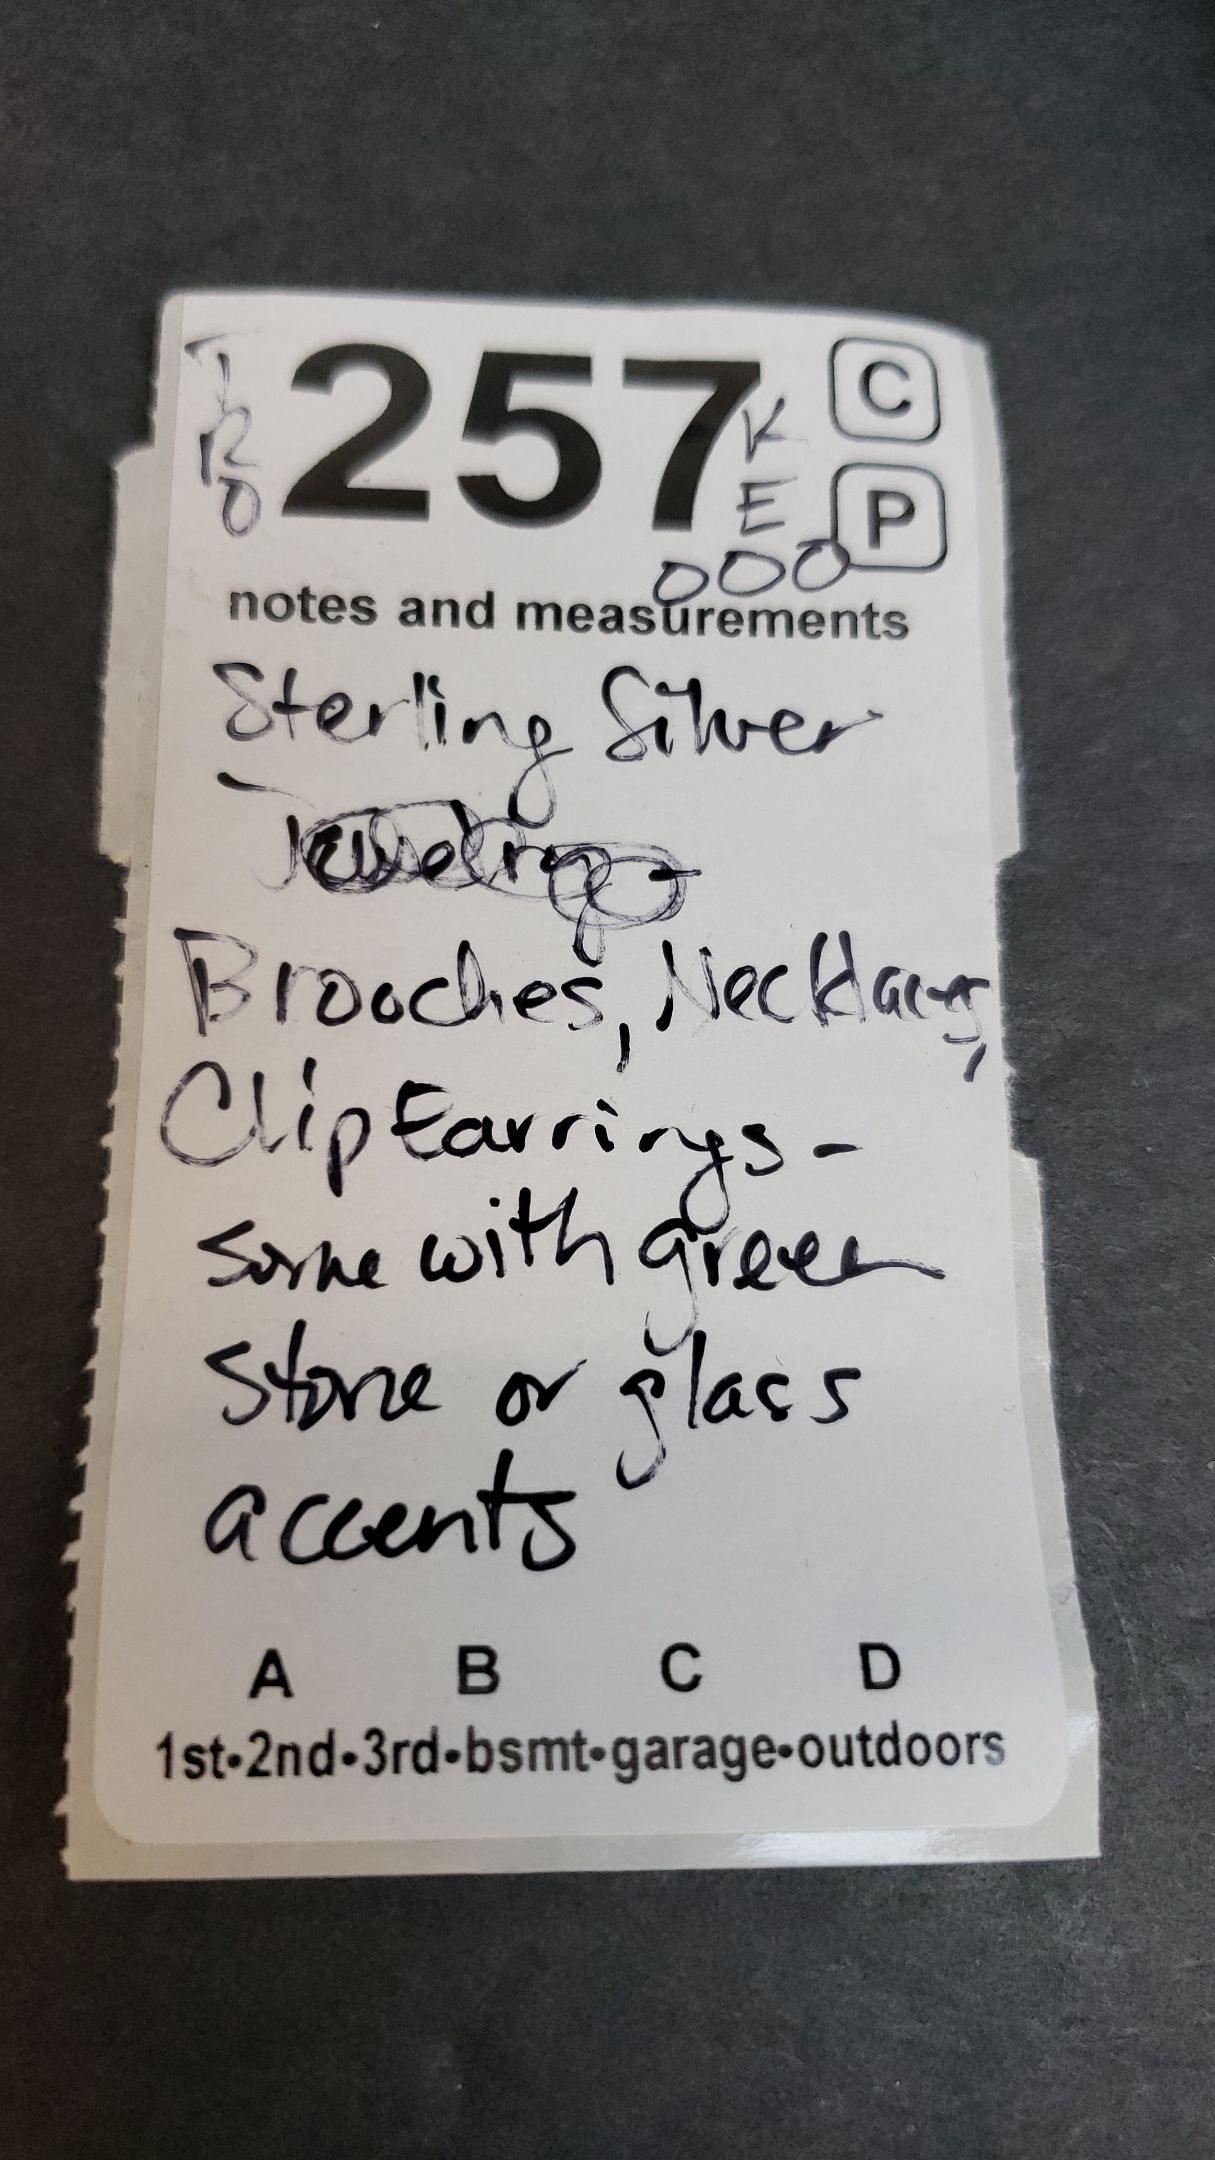 257
C
P
K
E
000
notes and measurements
Sterling Silver
Jewelry -
Brooches, Necklaces,
Clip Earrings -
some with green
stone or glass
accents
A B C D
1st•2nd•3rd•bsmt•garage•outdoors